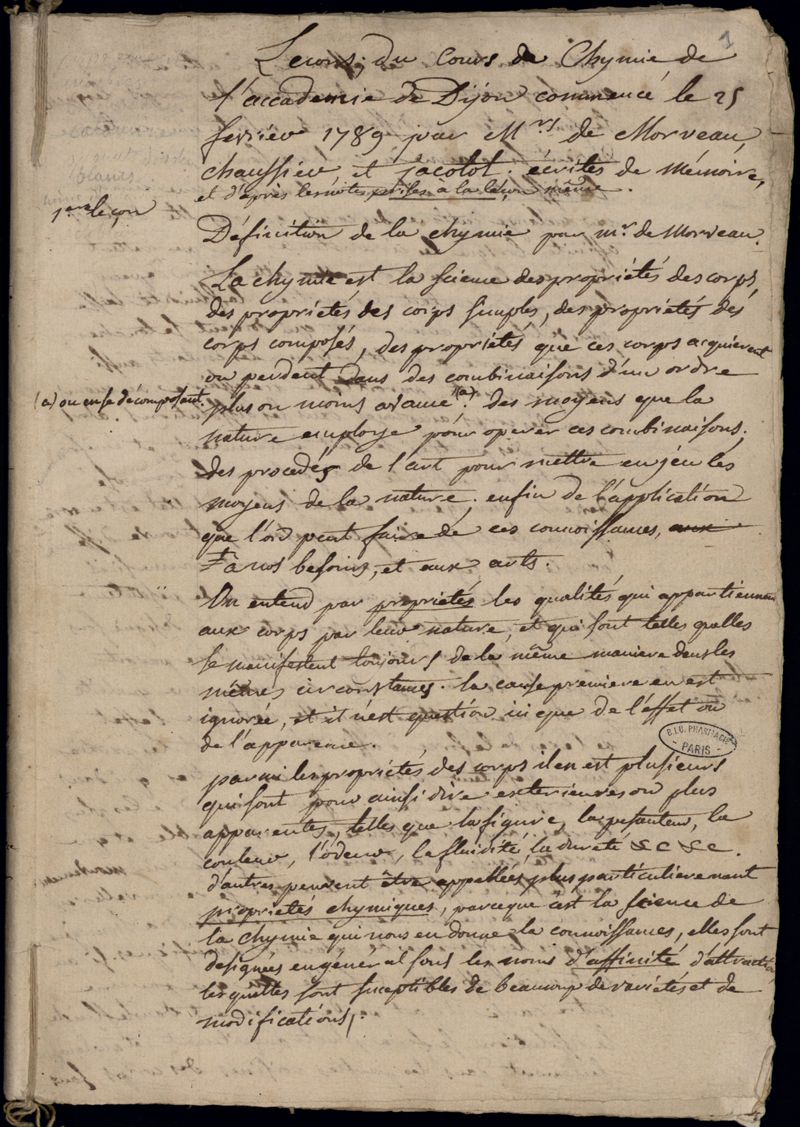 1
Lecons du cours de Chymie de
l'accademie de Dijon commencé le 25
fevriev 1789 par Mrs de Morveau,
chaussiev, et jacotot. écrites de mémoire,
et d'après les notes prises à la leçon même.
1ere leçon
Définition de la chymie par mr. de Morveau.
La chymie est la science des propriétés des corps,
des propriétés des corps simples, des propriétés des
corps composés, des propriétés que ces corps acquierent
ou perdent dans des combinaisons d'un ordre
(a) ou en se décomposant.
plus ou moins (a). des moyens que la
nature employe pour operer ces combinaisons,
des procedés de l'art pour mettre en jeu les
moyens de la nature, enfin de l'application
que l'on peut faire de ces connoissances, aux
à nos besoins, et aux arts.
On entend par propriétés les qualités qui appartiennent
aux corps par leur nature, et qui sont telles qu'elles
se manifestent toujours de la même maniere dans les
mêmes circonstances. la cause premiere en est
ignorée, et il n'est question ici que de l'effet ou
de l'apparence.
B.I.U. PHARMACIE
PARIS
parmi les propriétés des corps il en est plusieurs
qui sont pour ainsi dire exterieures ou plus
apparentes, telles que la figure, la pesanteur, la
couleur, l'odeur, la fluidité, la dureté &c &c.
d'autres peuvent être appellées plus particulierement
propriétés chymiques, parceque c'est la science de
la chymie qui nous en donne la connoissance, elles sont
designées en général sous les noms d'affinité d'attraction
lesquelles sont susceptibles de beaucoup de varietés et de
modifications.